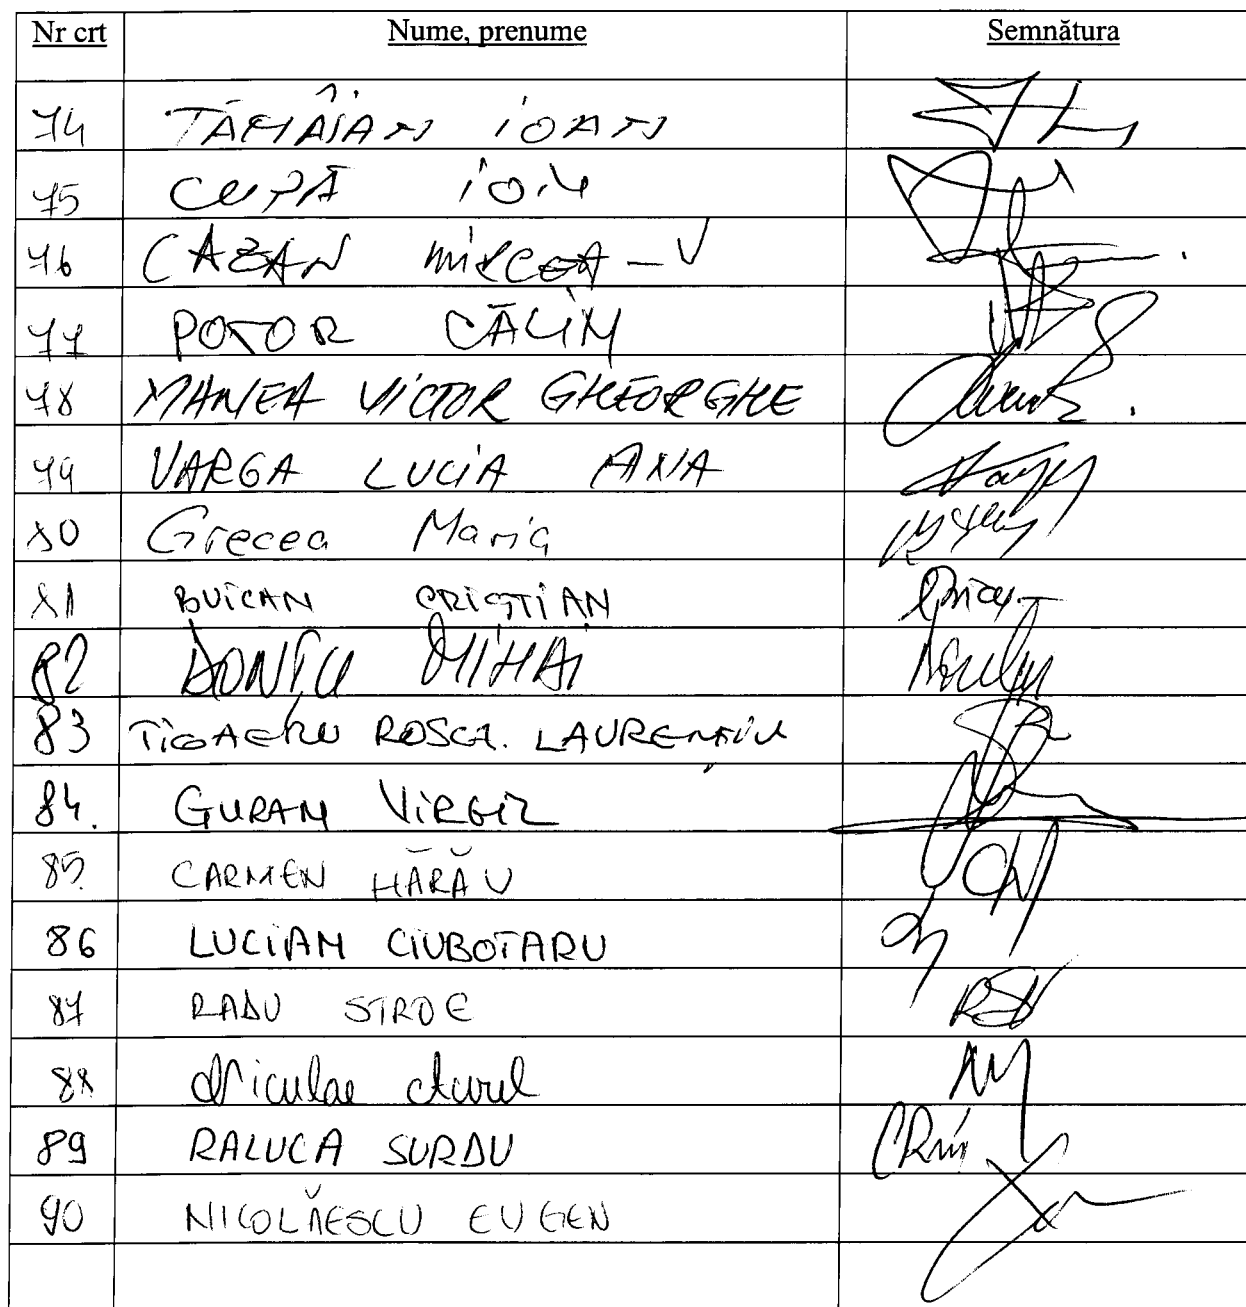 Nr crt Nume, prenume Semnătura
74 TĂMÂIAN IOAN
75 CUPĂ ION
76 CAZAN MIRCEA-V
77 POTOR CĂLIN
78 MANEA VICTOR GHEORGHE
79 VARGA LUCIA ANA
80 Grecea Maria
81 BUICAN CRISTIAN
82 DONȚU MIHAI
83 TIGAERU ROSCA. LAURENȚIU
84. GURAN VIRGIL
85. CARMEN HĂRĂU
86 LUCIAN CIUBOTARU
87 RADU STROE
88 Niculae Aurel
89 RALUCA SURDU
90 NICOLĂESCU EUGEN